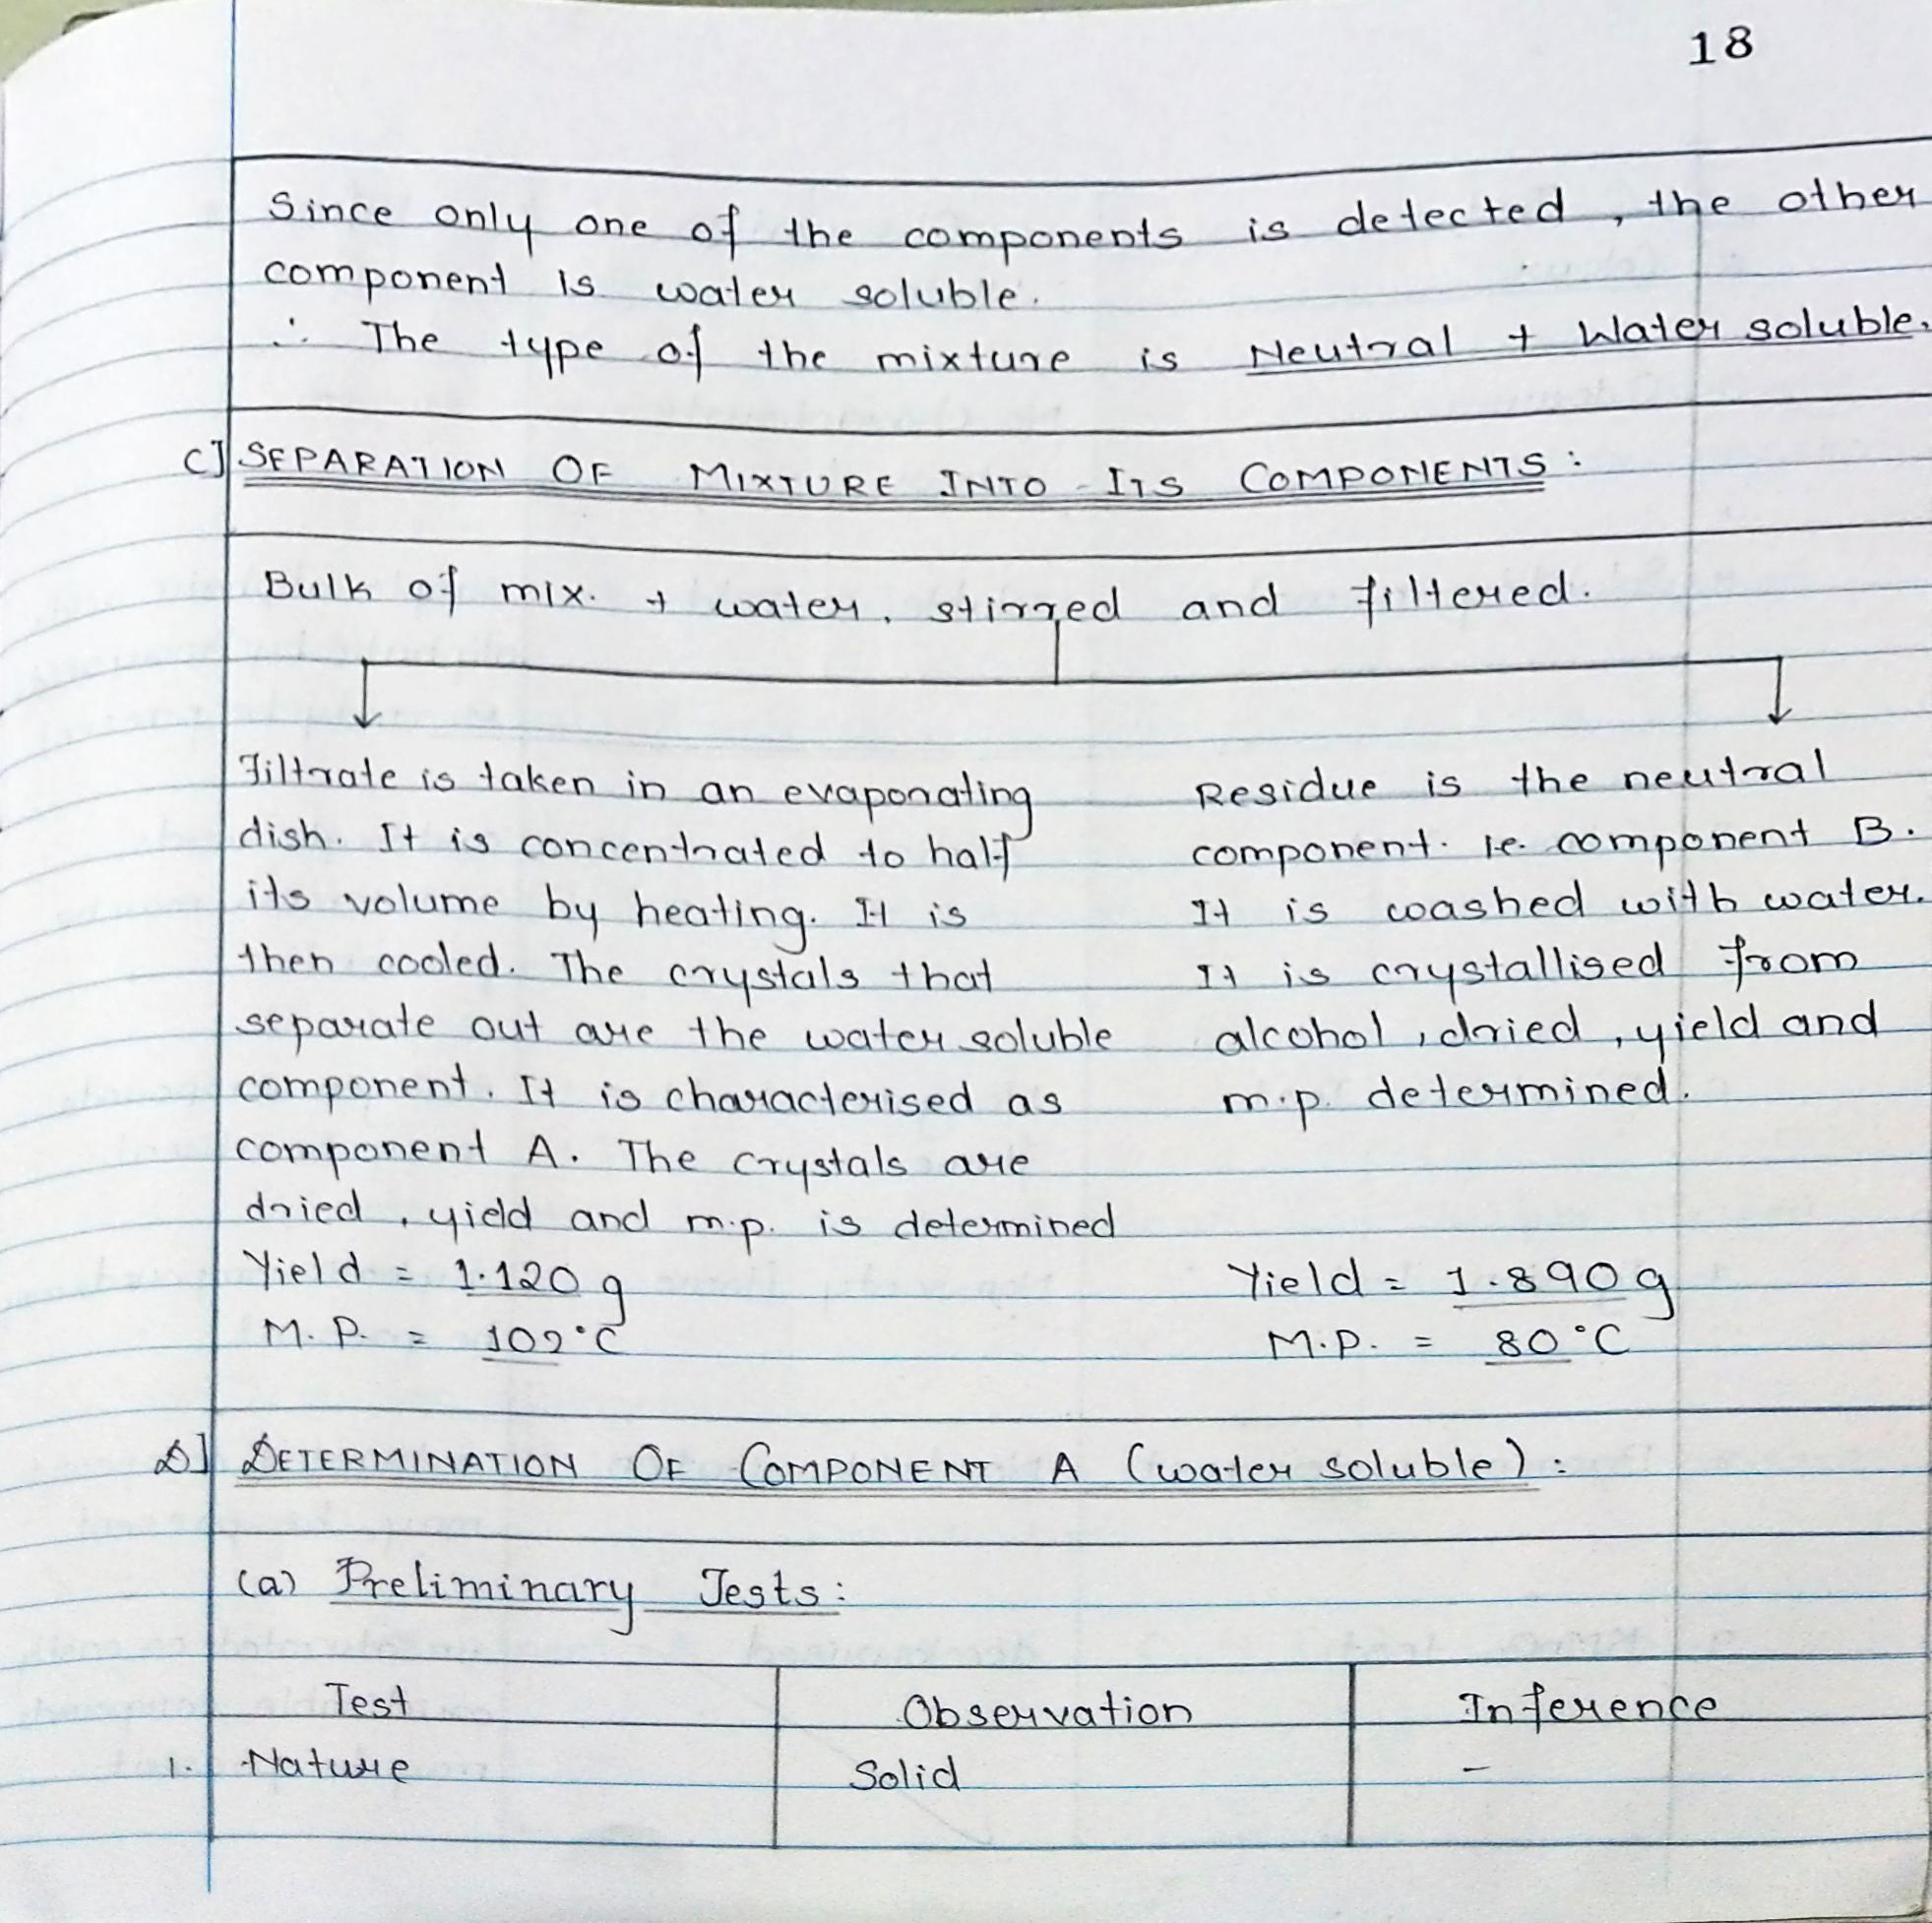 18
Since only one of the components is detected, the other
component is water soluble.
∴ The type of the mixture is Neutral + Water soluble.
C] SEPARATION OF MIXTURE INTO ITS COMPONENTS :
Bulk of mix. + water, stirred and filtered.
Filtrate is taken in an evaporating
dish. It is concentrated to half
its volume by heating. It is
then cooled. The crystals that
separate out are the water soluble
component. It is characterised as
component A. The crystals are
dried, yield and m.p. is determined
Yield = 1.120 g
M. P. = 102°C
Residue is the neutral
component. ie. component B.
It is washed with water.
It is crystallised from
alcohol, dried, yield and
m.p. determined.
Yield = 1.890 g
M.P. = 80°C
D] DETERMINATION OF COMPONENT A (water soluble) :
(a) Preliminary Tests :
Test Observation Inference
1. Nature Solid –